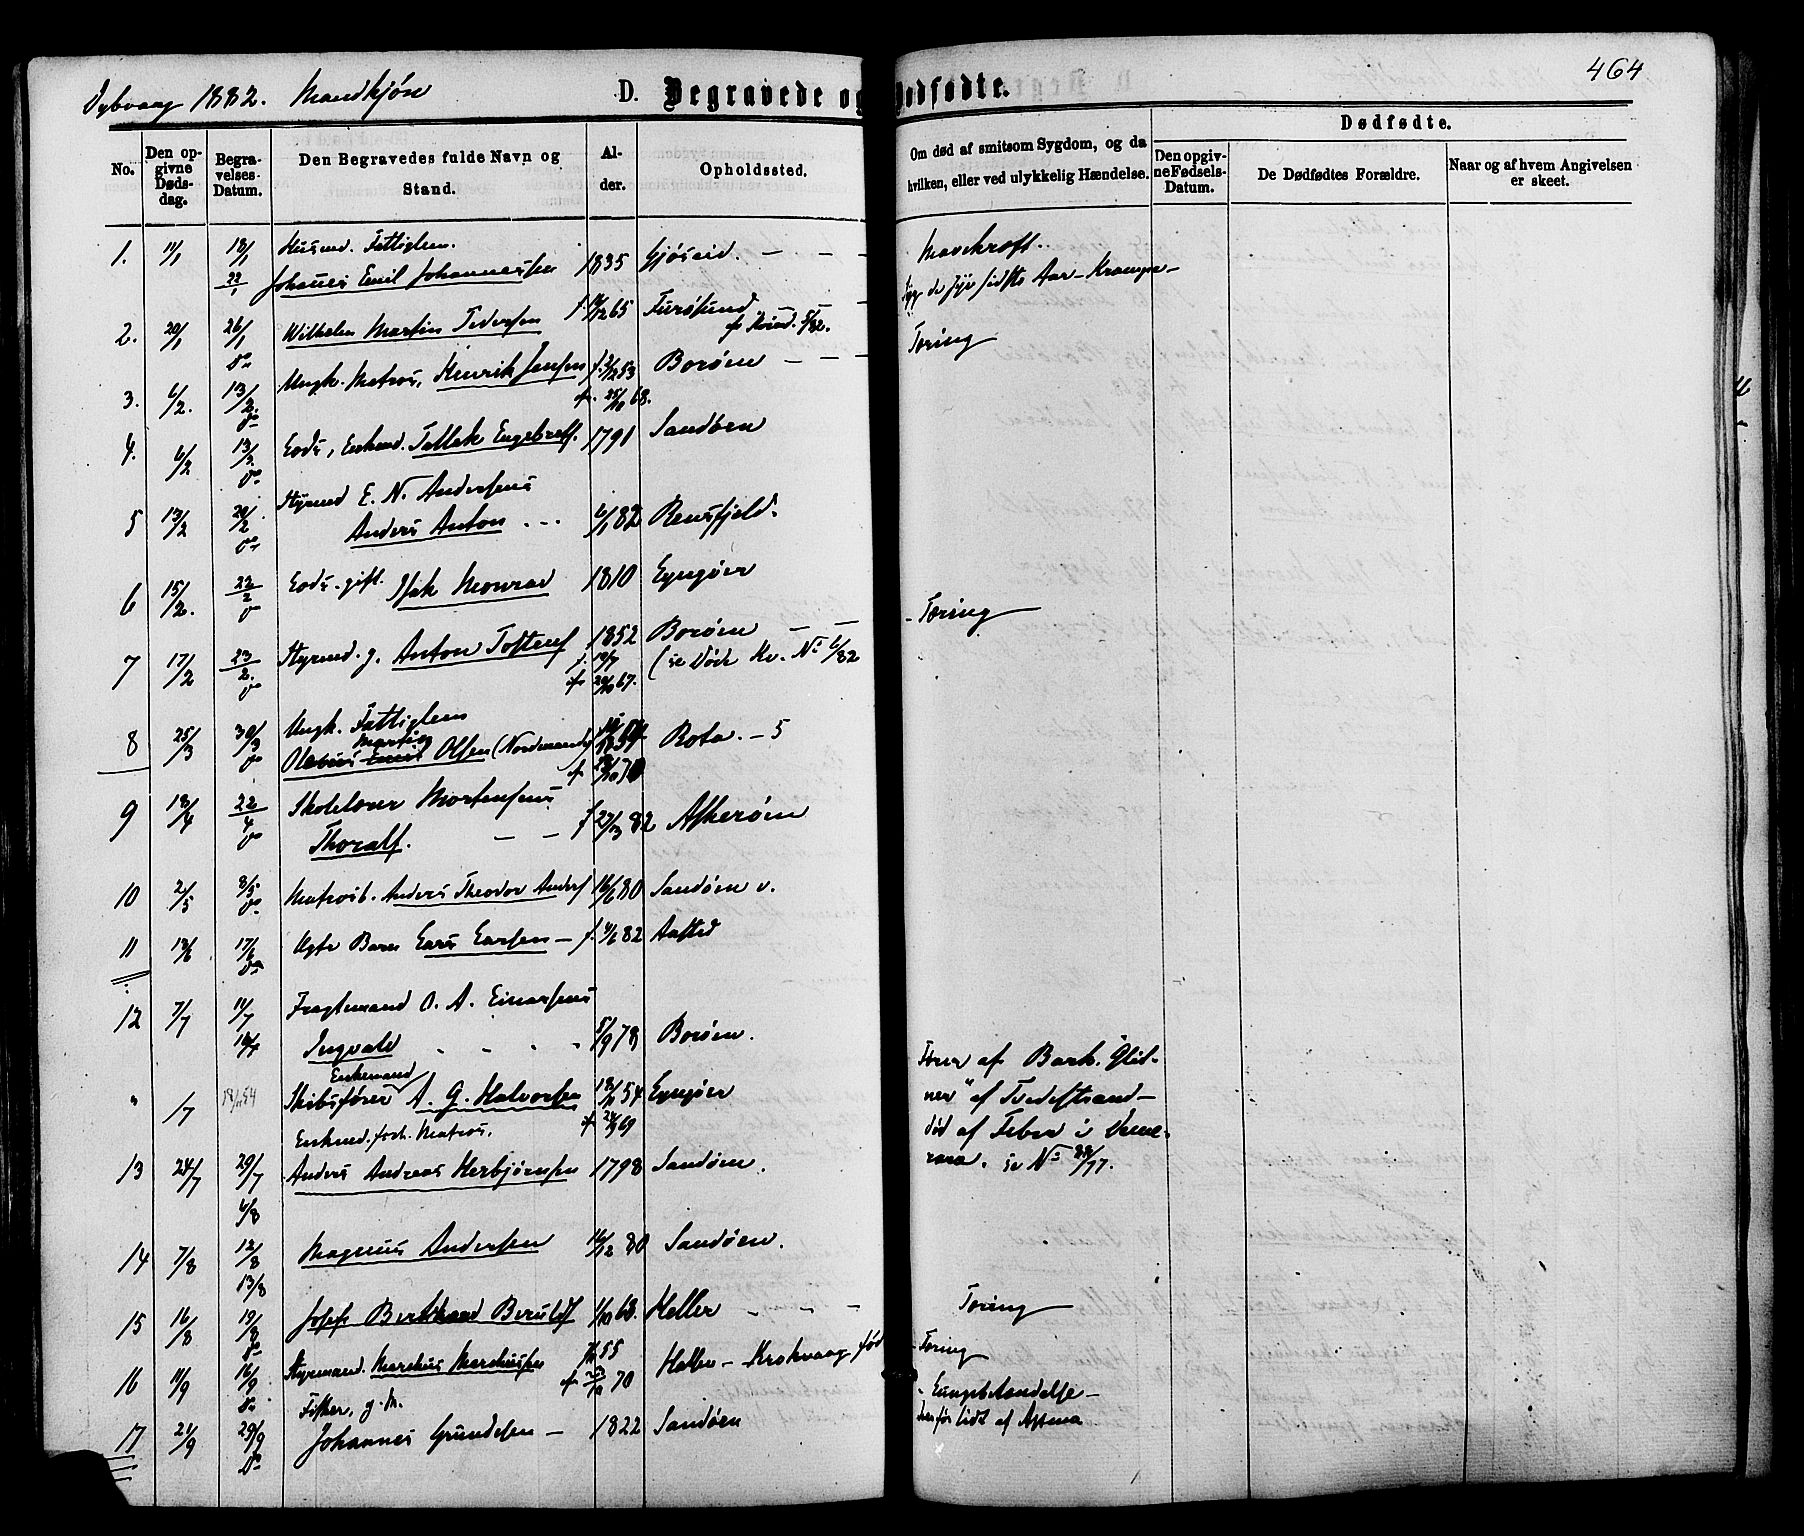 Dybvaag 1882. Mandkjøn D. Begravede og Dødfødte. 464
No. Den opgivne Dødsdag. Begravelses-Datum. Den Begravedes fulde Navn og Stand. Alder. Opholdssted. Om død af smitsom Sygdom, og da hvilken, eller ved ulykkelig Hændelse. Dødfødte. Den opgivne Fødsels-Datum. De Dødfødtes Forældre. Naar og af hvem Angivelsen er skeet.
1. 11/1 18/1 Husmd. Fattiglem.
22/1 Johannes Emil Johannessen 1835 Gjøseid. — — — Mavekræft.
de syv sidste Aar — Krampe —
2. 20/1 26/1 do Wilhelm Martin Pedersen f. 65 Furøsund — Tæring
3. 6/2. 13/2. do Ungk. Matros, Henrik Jensen f. 53 Borøen — — —
25/10 68.
4. 6/2 13/2 do Lods, Enkmd. Tallak Engebretss. 1791 Sandøen
5 13/2 20/2 do Styrmd E. N. Andersens
Anders Anton - - - 6/1 82 Rensfjeld.
6 15/2. 22/2 do Lods. gift. Isak Monrad 1810 Lyngøer
- Tæring
7 17/2 23/2. do Styrmd. g. Anton Tostens. 1852 Borøen — — —
67. (se Døde Kv. No 6/82
8 25/3 30/3 do Ungk. Fattiglem
Martin
Olaus Emil Olsen (Nordmand) Rota. - 5
9 18/4 22/4 do Skolelærer Mortensens
Thoralf. — — f 27/3 82 Askerøen
10 2/5 8/5 do Matrosb. Anders Theodor Anders. 16/6 80 Sandøen v.
11 13/6 17/6 do Ægte Barn Lars Larsen — f. 4/6 82 Aasted
12 7/7 11/7 Fragtemand O. A. Einarsens
16/7 Ingvald " " " " 5/9 78 Borøen.
Enkemand
" /7 Skibsfører A. G. Halvorsen 54 Lyngøer Fører af Bark. "Glitner" af Tvedestrand — død af Feber i Demerara. se No 88/77.
Enkmd. forh. Matros.
13 24/7 29/7 6/8 Anders Andreas Herbjørnsen 1798 Sandøen.
14 7/8 12/8 13/8 Magnus Andersen 16/12 80 Sandøen.
15 16/8 19/8 do Josef Berthrand Beruldss. 1/10 63. Heller - - - Tæring
16 11/9 16/9 do Styrmand. Marchus Marchussen 55 Heller — Krokvaag fød - Tæring
70
Fisker, g. M. - Lungebetændelse —
17 21/9 29/9 do Johannes Grundesen — 1822 Sandøen derfør lidt af Astma